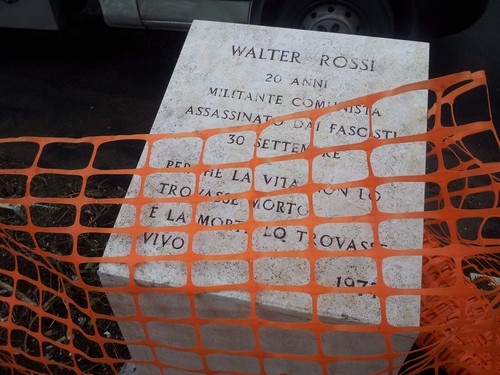 WALTER ROSSI
20 ANNI
MILITANTE COMUNISTA
ASSASSINATO DAI FASCISTI
30 SETTEMBRE
PERCHE LA VITA NON LO
TROVASSE MORTO
E LA MORTE LO TROVASSE
VIVO
1977